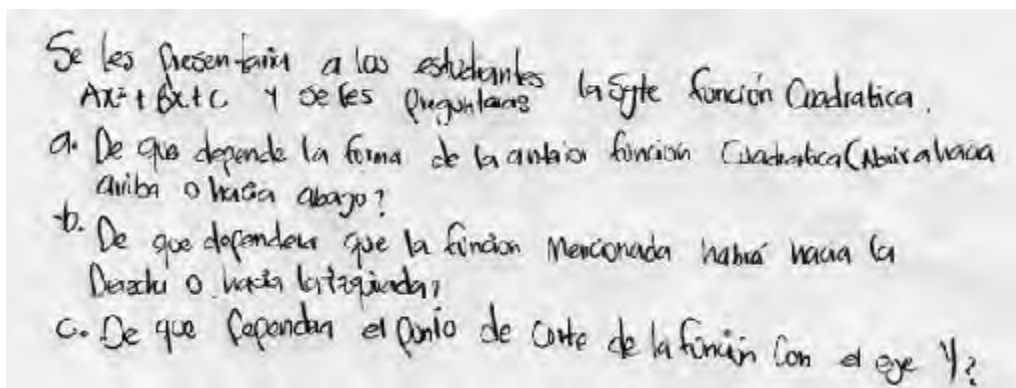 Se les presentaria a los estudiantes la sgte función Cuadratica.
Ax²+Bx+C y se les preguntara
a. De que depende la forma de la anterior función Cuadratica (Abrira hacia
arriba o hacia abajo?
b. De que dependera que la función mencionada habrá hacia la
Derecha o hacia la izquierda?
c. De que dependera el punto de corte de la función con el eje Y?